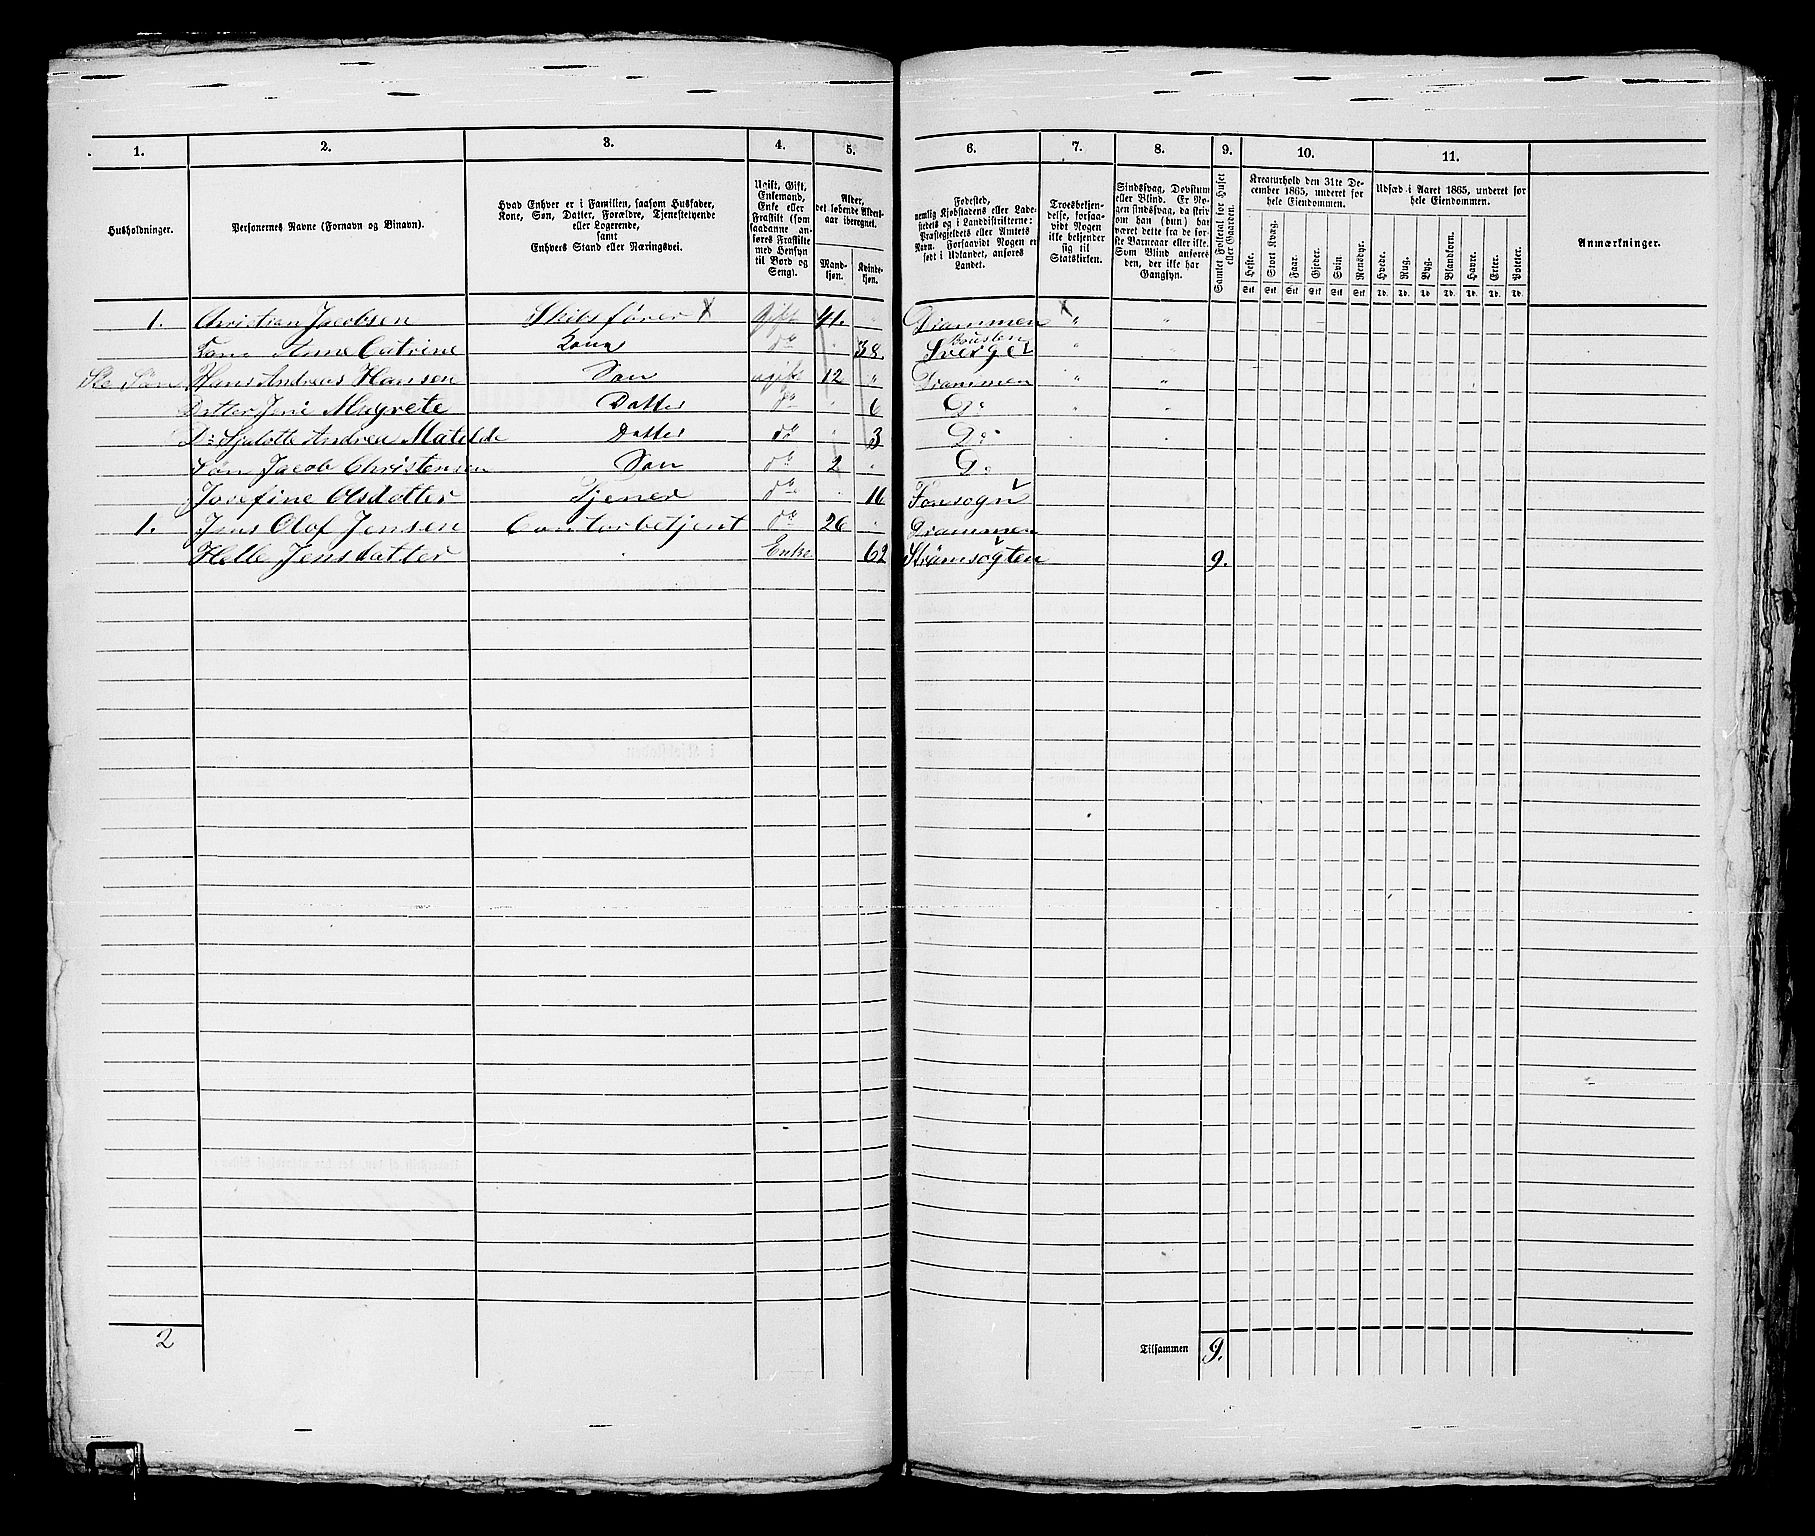 1. 2. 3. 4. 5. 6. 7. 8. 9. 10. 11.
Husholdninger.
Personernes Navne (Fornavn og Binavn).
Hvad Enhver er i Familien, saasom Husfader,
Kone, Søn, Datter, Forældre, Tjenestetyende
eller Logerende,
samt
Enhvers Stand eller Næringsvei.
Ugift, Gift,
Enkemand,
Enke eller
Fraskilt (som
saadanne an-
føres Fraskilte
med Hensyn
til Bord og
Seng).
Alder,
det løbende Alders-
aar iberegnet.
Mand-
kjøn.
Kvinde-
kjøn.
Fødested,
nemlig Kjøbstadens eller Lade-
stedets og i Landdistrikterne:
Præstegjeldets eller Amtets
Navn. Forsaavidt Nogen er
født i Udlandet, anføres
Landet.
Troesbekjen-
delse, forsaa-
vidt Nogen
ikke bekjender
sig til
Statskirken.
Sindssvag, Døvstum
eller Blind. Er No-
gen sindssvag, da skriv
om han (hun) har
været dette fra de før-
ste Barneaar eller ikke.
Som Blind anføres
den, der ikke har
Gangsyn.
Samlet Folketal for Huset
eller Gaarden.
Kreaturhold den 31te De-
cember 1865, underet for
hele Eiendommen.
Heste. Stort Kvæg. Faar. Gjeder. Svin. Rensdyr.
Stk Stk Stk Stk Stk Stk
Udsæd i Aaret 1865, underet for
hele Eiendommen.
Hvede. Rug. Byg. Blandkorn. Havre. Erter. Poteter.
Td. Td. Td. Td. Td. Td. Td.
Anmærkninger.
1. Christian Jacobsen Skibsfører X Gift 41. " Drammen X " "
Anne Catrine Kone do " 38. Sverge " "
Ste Søn Hans Andreas Hansen Søn ugift 12 " Drammen " "
Datter Jeni Magrete Datter do " 6 Do " "
Do Andrea Matilde Datter do " 3 Do
Søn Jacob Christensen Søn do 2 " Do
Josefine Olsdatter Tjener do "
1. Jens Olof Jensen Contorbetjent do 26 " Drammen
Helle Jensdatter Enke 62 9.
2 Tilsammen 9.